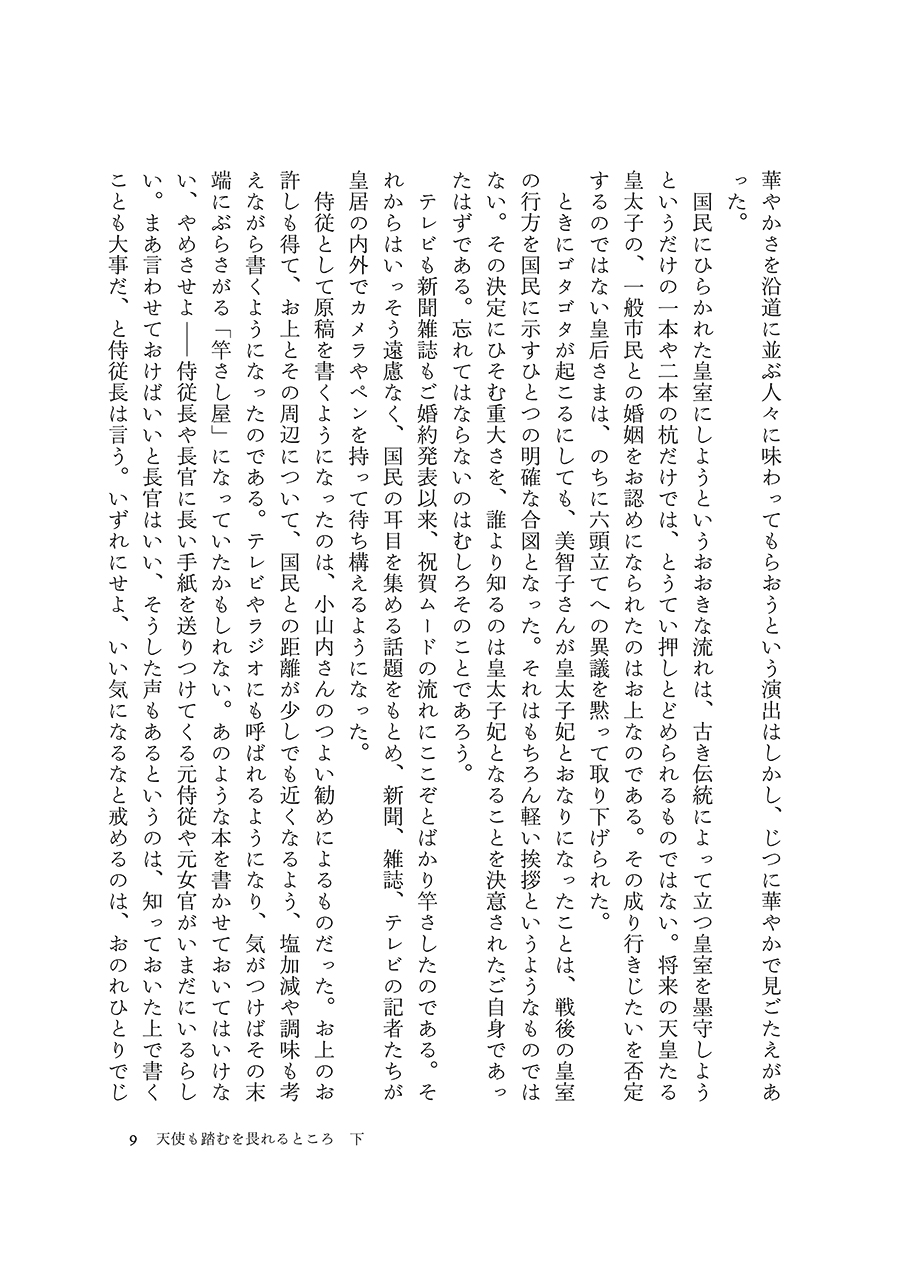 華やかさを沿道に並ぶ人々に味わってもらおうという演出はしかし、じつに華やかで見ごたえがあ
った。
　国民にひらかれた皇室にしようというおおきな流れは、古き伝統によって立つ皇室を墨守しよう
というだけの一本や二本の杭だけでは、とうてい押しとどめられるものではない。将来の天皇たる
皇太子の、一般市民との婚姻をお認めになられたのはお上なのである。その成り行きじたいを否定
するのではない皇后さまは、のちに六頭立てへの異議を黙って取り下げられた。
　ときにゴタゴタが起こるにしても、美智子さんが皇太子妃とおなりになったことは、戦後の皇室
の行方を国民に示すひとつの明確な合図となった。それはもちろん軽い挨拶というようなものでは
ない。その決定にひそむ重大さを、誰より知るのは皇太子妃となることを決意されたご自身であっ
たはずである。忘れてはならないのはむしろそのことであろう。
　テレビも新聞雑誌もご婚約発表以来、祝賀ムードの流れにここぞとばかり竿さしたのである。そ
れからはいっそう遠慮なく、国民の耳目を集める話題をもとめ、新聞、雑誌、テレビの記者たちが
皇居の内外でカメラやペンを持って待ち構えるようになった。
　侍従として原稿を書くようになったのは、小山内さんのつよい勧めによるものだった。お上のお
許しも得て、お上とその周辺について、国民との距離が少しでも近くなるよう、塩加減や調味も考
えながら書くようになったのである。テレビやラジオにも呼ばれるようになり、気がつけばその末
端にぶらさがる「竿さし屋」になっていたかもしれない。あのような本を書かせておいてはいけな
い、やめさせよ――侍従長や長官に長い手紙を送りつけてくる元侍従や元女官がいまだにいるらし
い。まあ言わせておけばいいと長官はいい、そうした声もあるというのは、知っておいた上で書く
ことも大事だ、と侍従長は言う。いずれにせよ、いい気になるなと戒めるのは、おのれひとりでじ
9　天使も踏むを畏れるところ　下